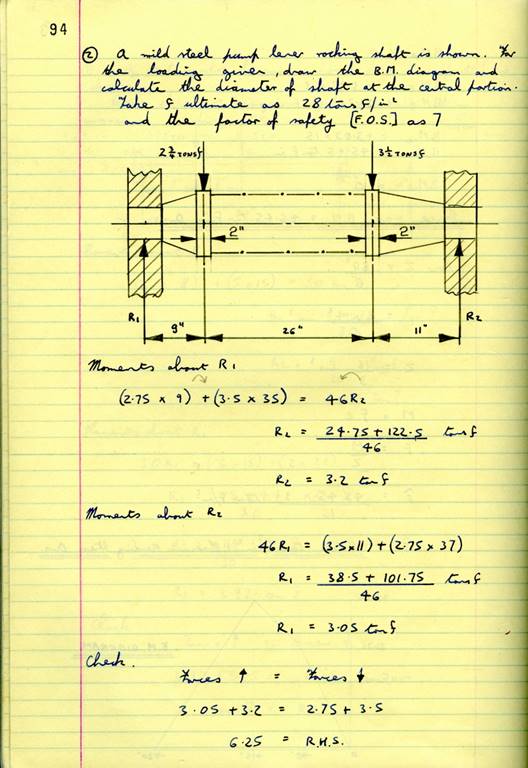 94
② A mild steel pump lever rocking shaft is shown. For
the loading given, draw the B.M. diagram and
calculate the diameter of shaft at the central portion.
Take f ultimate as 28 tons f/in²
and the factor of safety [F.O.S.] as 7
2 3/4 TONS f 3 1/2 TONS f
2" 2"
R1 R2
9" 26" 11"
Moments about R1
(2.75 x 9) + (3.5 x 35) = 46R2
R2 = 24.75 + 122.5 / 46 tons f
R2 = 3.2 ton f
Moments about R2
46R1 = (3.5x11) + (2.75 x 37)
R1 = 38.5 + 101.75 / 46 tons f
R1 = 3.05 ton f
Check.
Forces ↑ = Forces ↓
3.05 + 3.2 = 2.75 + 3.5
6.25 = R.H.S.